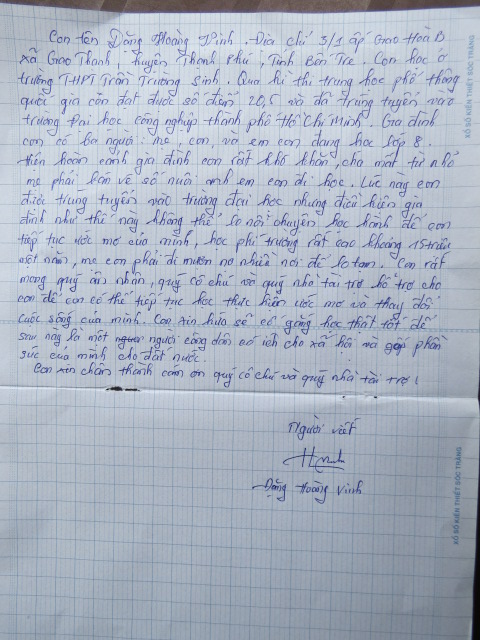 Con tên Đặng Hoàng Vinh. Địa chỉ 3/1 ấp Giao Hoà B
xã Giao Thạnh, huyện Thạnh Phú, Tỉnh Bến Tre. Con học ở
trường THPT Trần Trường Sinh. Qua kì thi trung học phổ thông
quốc gia con đạt được số điểm 20,5 và đã trúng tuyển vào
trường Đại học công nghiệp thành phố Hồ Chí Minh. Gia đình
con có ba người: mẹ, con, và em con đang học lớp 8.
hiện hoàn cảnh gia đình con rất khó khăn, cha mất từ nhỏ
mẹ phải bán vé số nuôi anh em con đi học. Lúc này con
được trúng tuyển vào trường đại học nhưng điều kiện gia
đình như thế này không thể lo nổi chuyện học hành để con
tiếp tục ước mơ của mình, học phí trường rất cao khoảng 15 triệu
một năm, mẹ con phải đi mượn nợ nhiều nơi để lo tạm. Con rất
mong quý ân nhân, quý cô chú và quý nhà tài trợ hỗ trợ cho
con để con có thể tiếp tục học thực hiện ước mơ và thay đổi
cuộc sống của mình. Con xin hứa sẽ cố gắng học thật tốt để
sau này là một người công dân có ích cho xã hội và góp phần
sức của mình cho đất nước.
Con xin chân thành cám ơn quý cô chú và quý nhà tài trợ!
Người viết
Đặng Hoàng Vinh
XỔ SỐ KIẾN THIẾT SÓC TRĂNG
XỔ SỐ KIẾN THIẾT SÓC TRĂNG